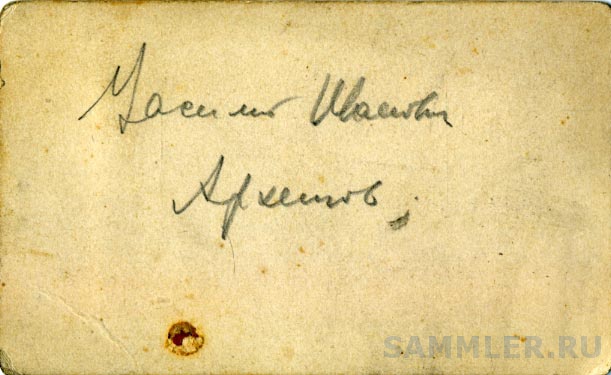 Василий Иванович
Архипов
SAMMLER.RU